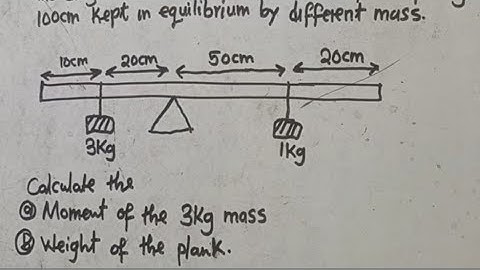 100cm kept in equilibrium by different mass.
10cm 20cm 50cm 20cm
3Kg 1Kg
Calculate the
ⓐ Moment of the 3Kg mass
Ⓑ Weight of the plank.